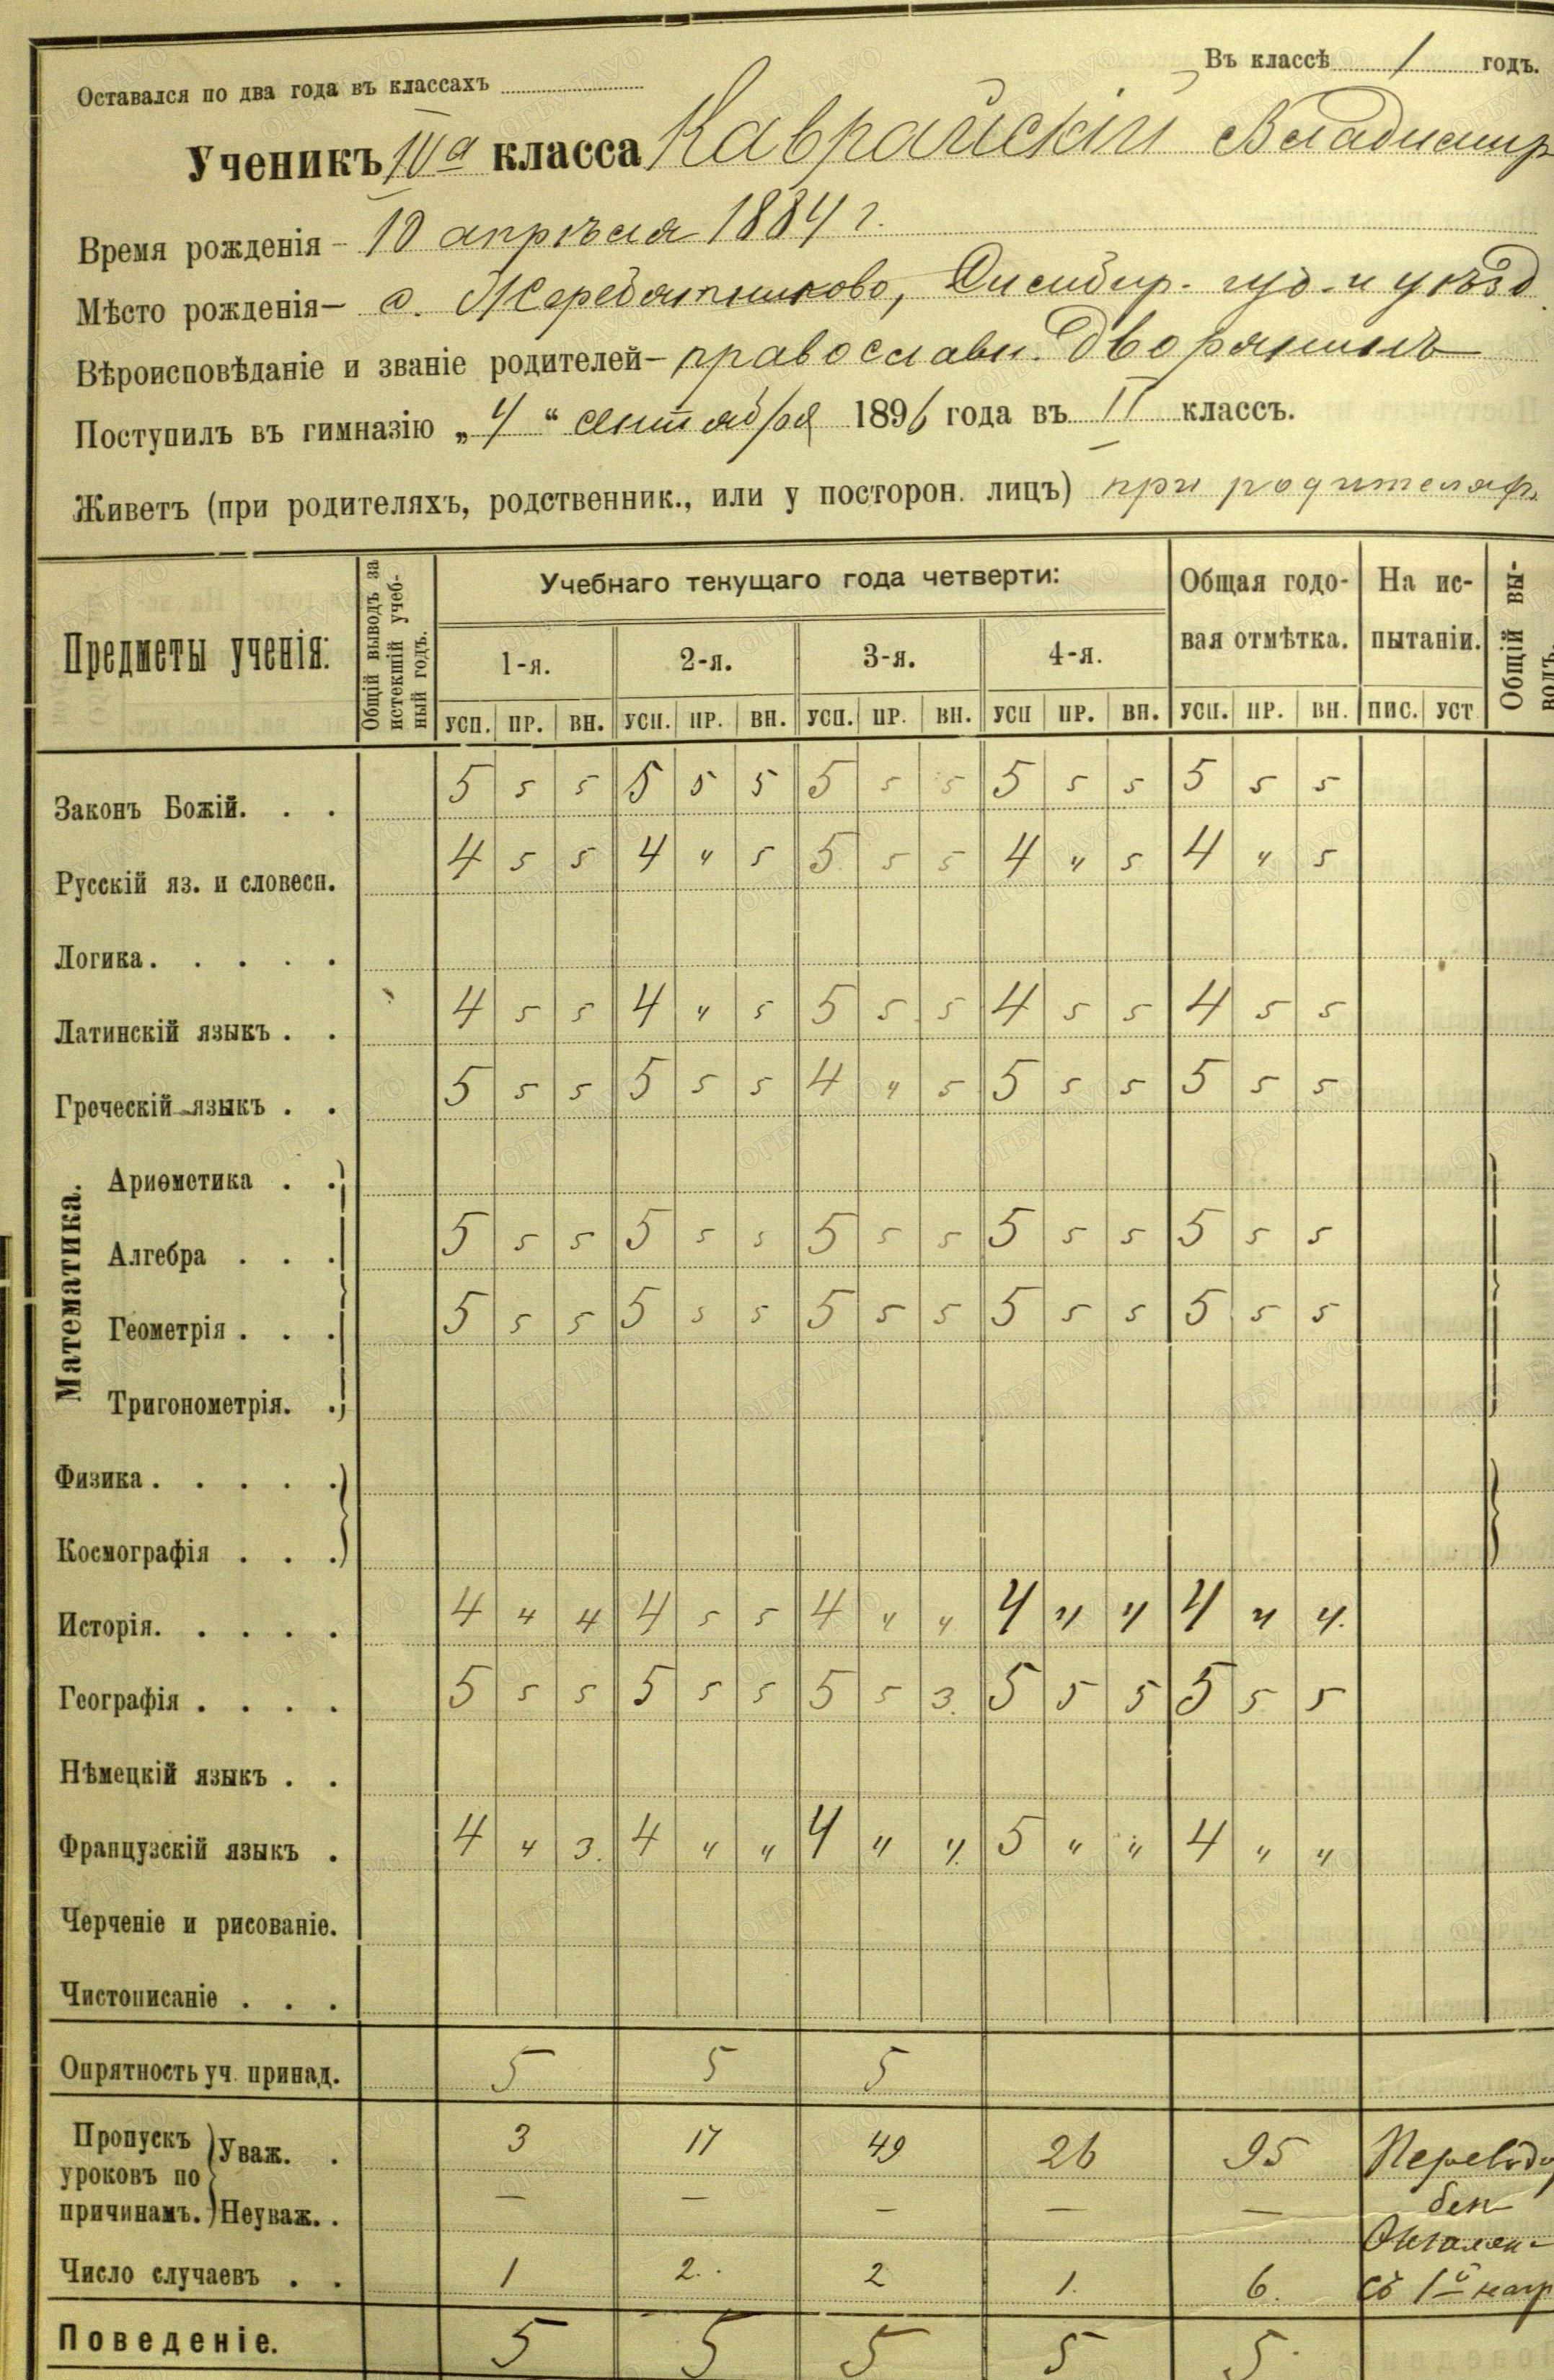 Въ классѣ 1 годъ.
Оставался по два года въ классахъ
Ученикъ IVа класса Каврайскій Владимир
Время рожденія – 10 апрѣля 1884 г.
Мѣсто рожденія – с. Жеребятниково, Симбир. губ. и уѣзд
Вѣроисповѣданіе и званіе родителей – православн. Дворянинъ
Поступилъ въ гимназію „4“ сентября 1896 года въ II классъ.
Живетъ (при родителяхъ, родственник., или у посторон. лицъ) при родителях
Предметы ученія: Общій выводъ за истекшій учебный годъ. Учебнаго текущаго года четверти: Общая годовая отмѣтка. На испытаніи. Общій выводъ
1-я. 2-я. 3-я. 4-я.
усп. пр. вн. усп. пр. вн. усп. пр. вн. усп пр. вн. усп. пр. вн. пис. уст
Законъ Божій. . . 5 5 5 5 5 5 5 5 5 5 5 5 5 5 5
Русскій яз. и словесн. 4 5 5 4 4 5 5 5 5 4 4 5 4 4 5
Логика. . . . .
Латинскій языкъ . . 4 5 5 4 4 5 5 5 5 4 5 5 4 5 5
Греческій языкъ . . 5 5 5 5 5 5 4 4 5 5 5 5 5 5 5
Математика.
Ариѳметика . .
Алгебра . . . 5 5 5 5 5 5 5 5 5 5 5 5 5 5 5
Геометрія . . . 5 5 5 5 5 5 5 5 5 5 5 5 5 5 5
Тригонометрія. .
Физика . . . . .
Космографія . . .
Исторія. . . . . 4 4 4 4 5 5 4 4 4 4 4 4 4 4 4.
Географія . . . . 5 5 5 5 5 5 5 5 3. 5 5 5 5 5 5
Нѣмецкій языкъ . .
Французскій языкъ . 4 4 3. 4 4 4 4 4 4. 5 4 4 4 4 4
Черченіе и рисованіе.
Чистописаніе . . .
Опрятность уч. принад. 5 5 5
Пропускъ уроковъ по причинамъ. Уваж. . 3 17 49 26 95
Неуваж. . — — — — —
Число случаевъ . . 1 2. 2 1. 6.
съ 1й нагр
Поведеніе. 5 5 5 5 5